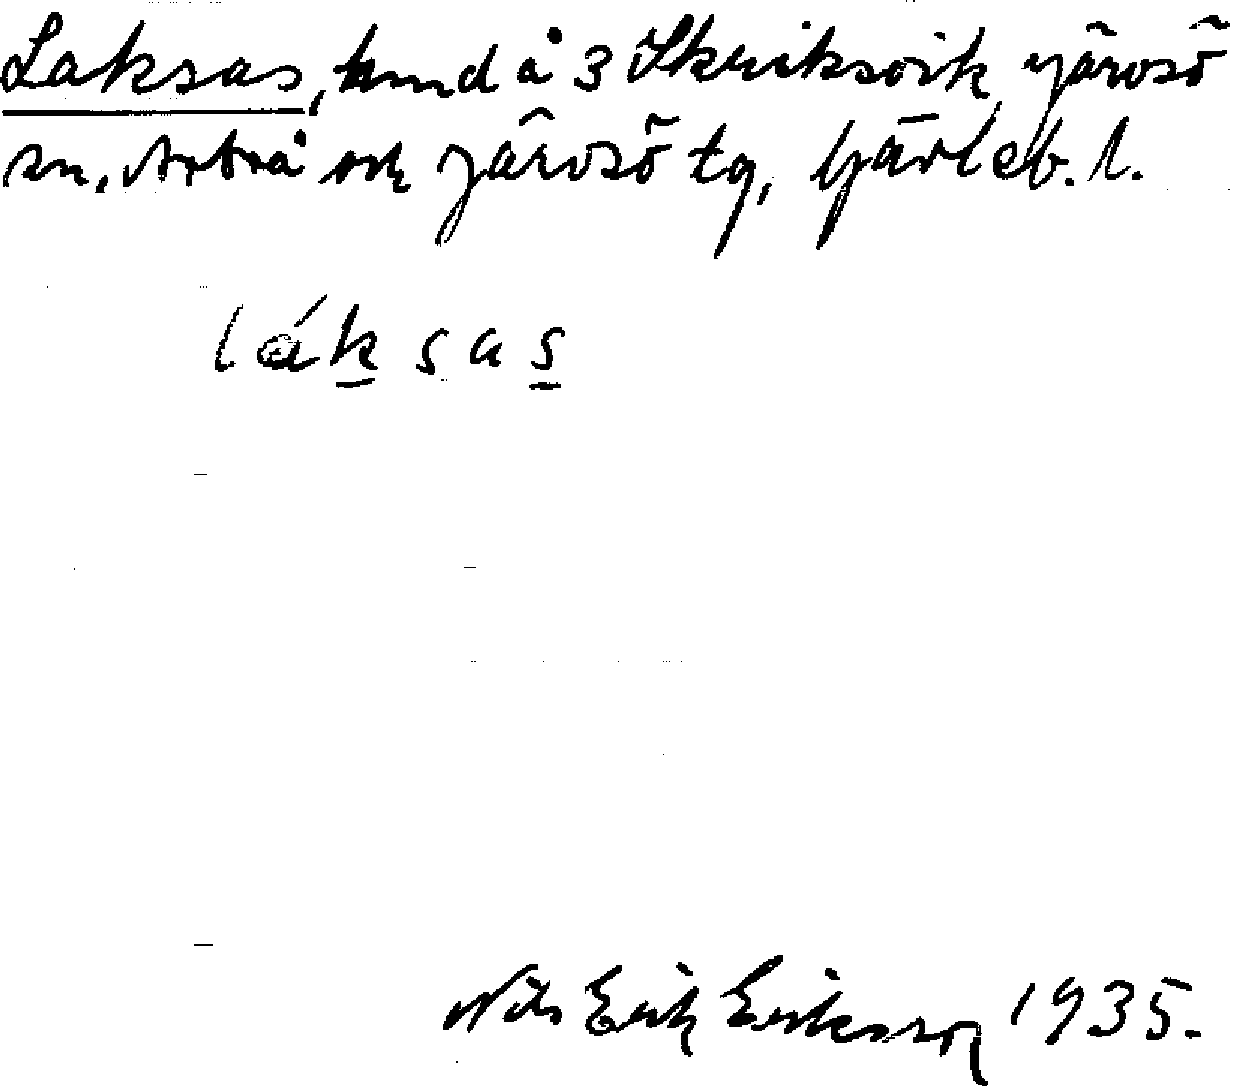 Laksas, hmd å 3 Skriksvik, Järvsö
sn, Arbrå och Järvsö tg, Gävleb. l.
láksas
Nils Erik Eriksson 1935.